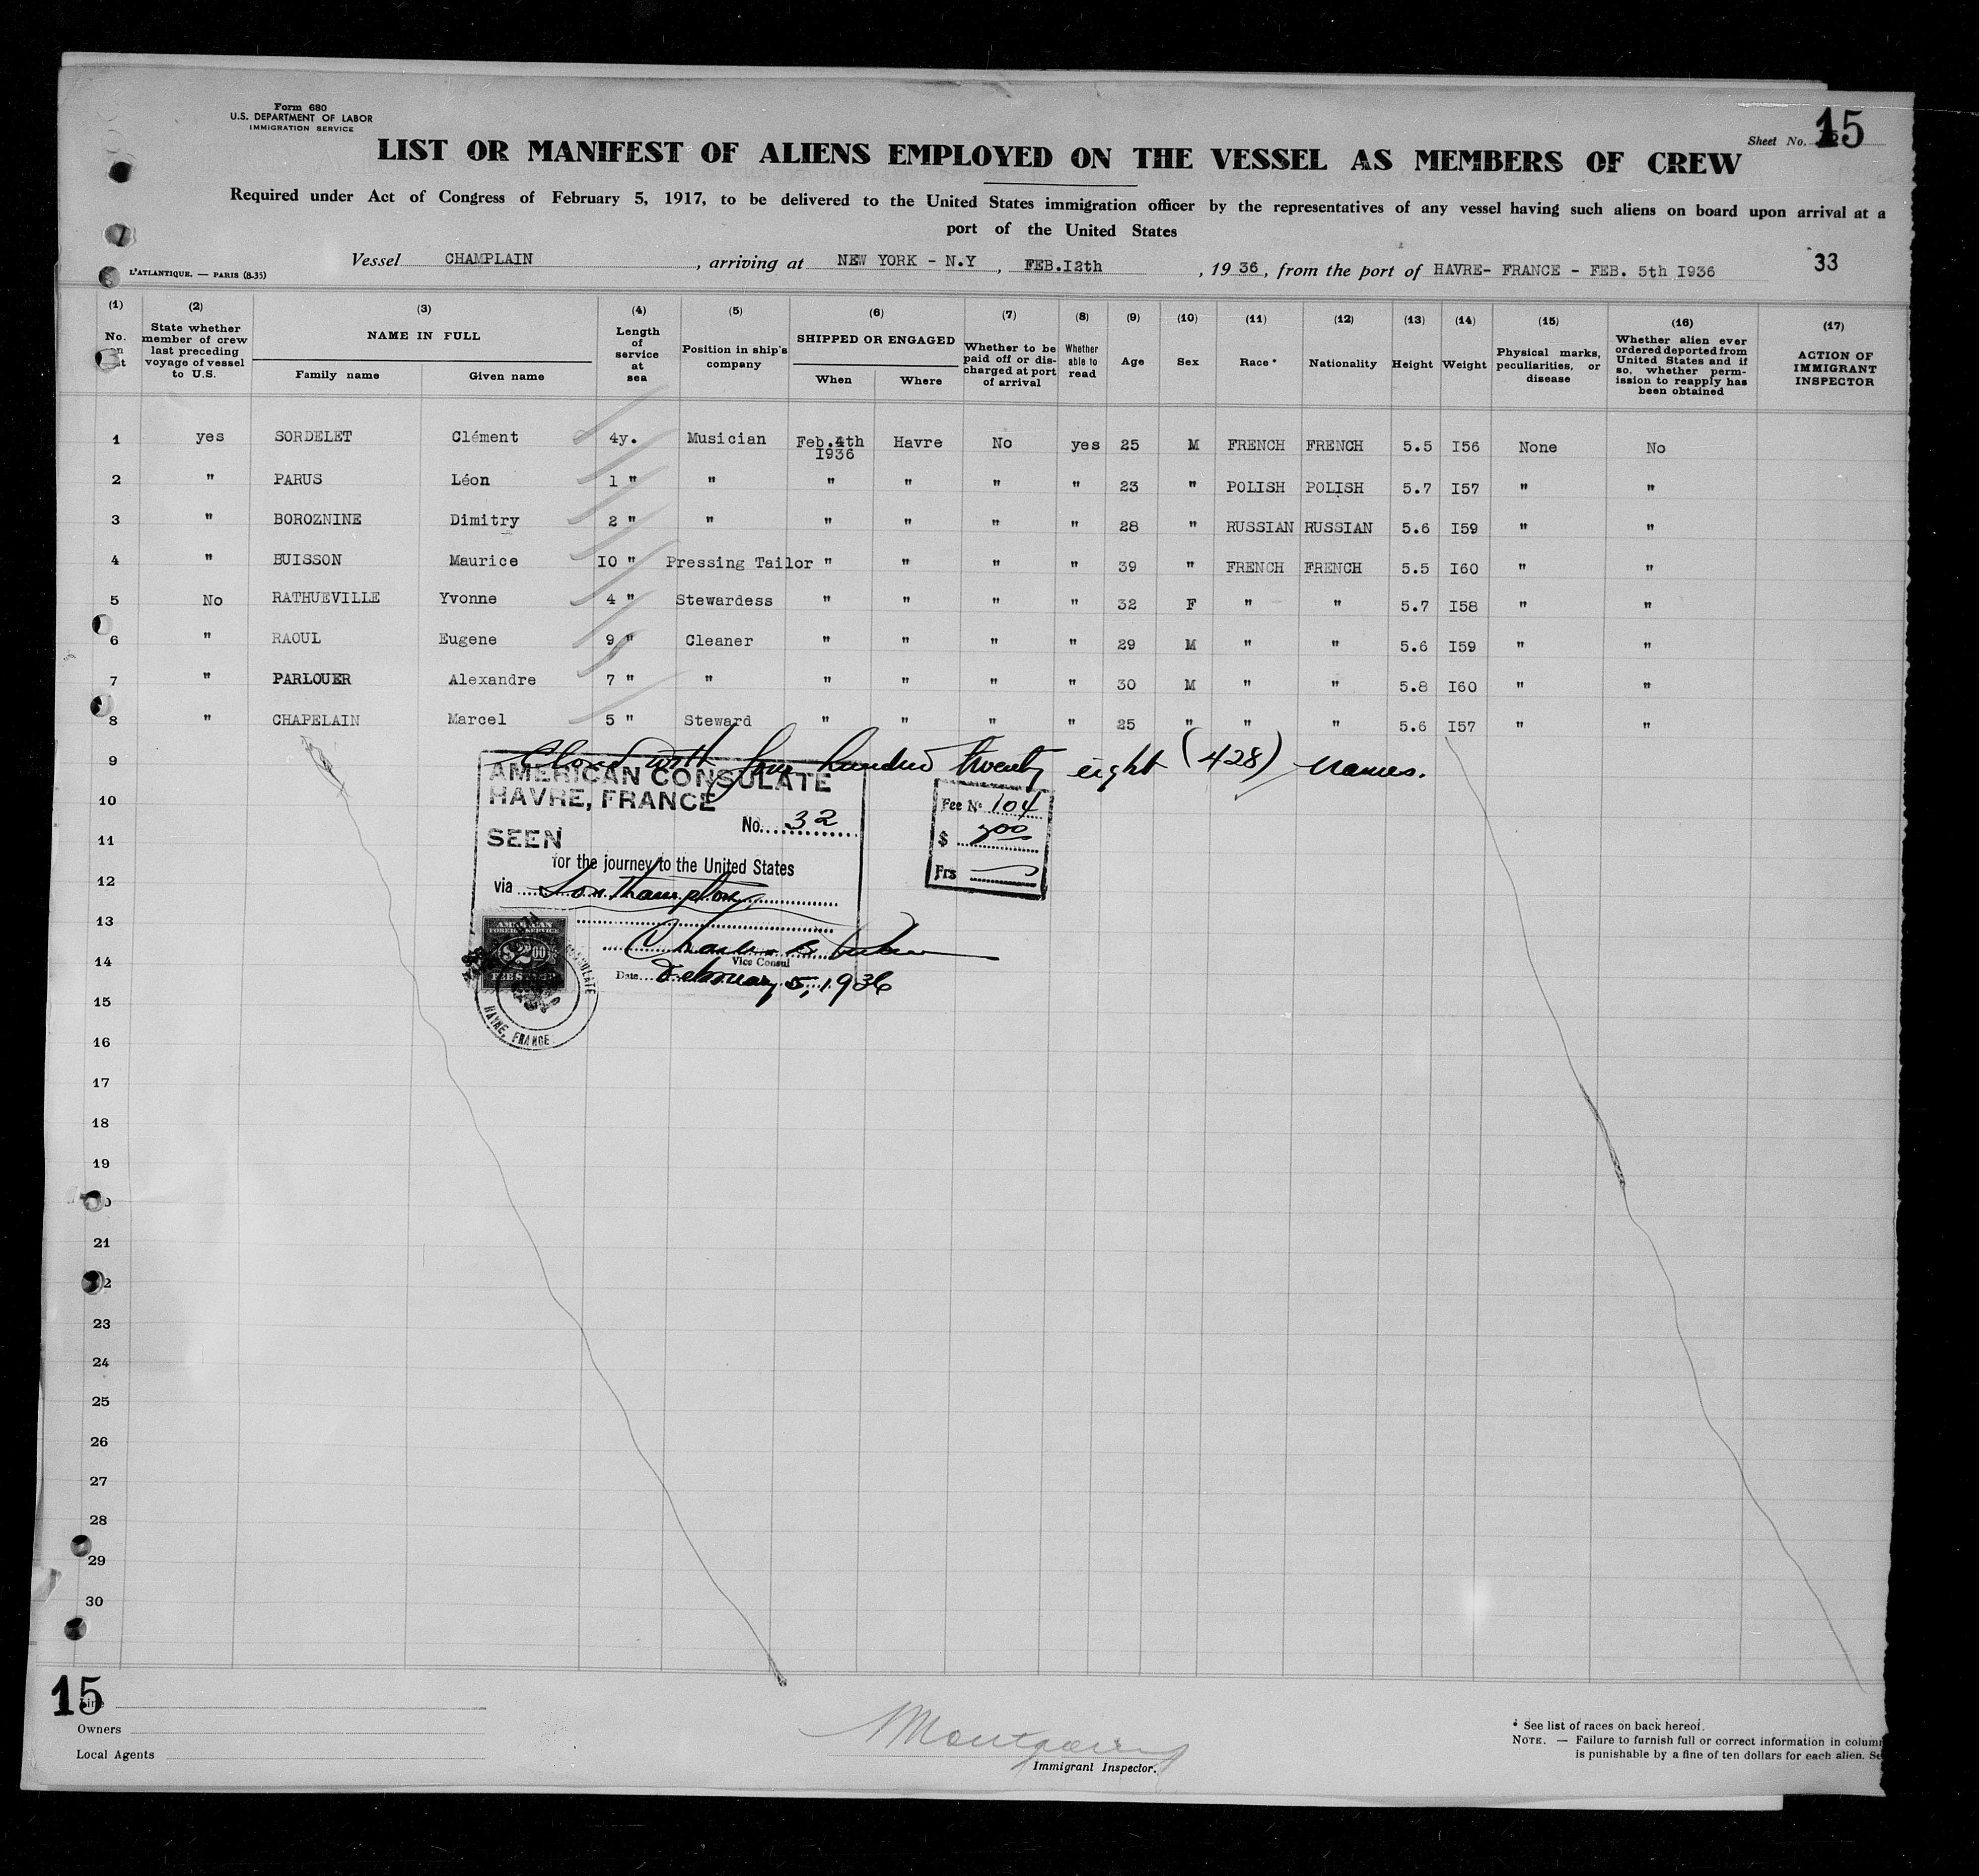 Form 680
U.S. DEPARTMENT OF LABOR
IMMIGRATION SERVICE
Sheet No. 15
LIST OR MANIFEST OF ALIENS EMPLOYED ON THE VESSEL AS MEMBERS OF CREW
Required under Act of Congress of February 5, 1917, to be delivered to the United States immigration officer by the representatives of any vessel having such aliens on board upon arrival at a
port of the United States
Vessel CHAMPLAIN, arriving at NEW YORK - N.Y, FEB.I2th, 19 36, from the port of HAVRE- FRANCE - FEB. 5th I936
33
L'ATLANTIQUE. — PARIS (8-35)
(1) (2) (3) (4) (5) (6) (7) (8) (9) (10) (11) (12) (13) (14) (15) (16) (17)
No.
State whether member of crew last preceding voyage of vessel to U.S.
NAME IN FULL
Family name Given name
Length of service at sea
Position in ship's company
SHIPPED OR ENGAGED
When Where
Whether to be paid off or discharged at port of arrival
Whether able to read
Age
Sex
Race *
Nationality
Height
Weight
Physical marks, peculiarities, or disease
Whether alien ever ordered deported from United States and if so, whether permission to reapply has been obtained
ACTION OF IMMIGRANT INSPECTOR
1 yes SORDELET Clément 4y. Musician Feb.4th I936 Havre No yes 25 M FRENCH FRENCH 5.5 I56 None No
2 " PARUS Léon 1 " " " " " " 23 " POLISH POLISH 5.7 I57 " "
3 " BOROZNINE Dimitry 2 " " " " " " 28 " RUSSIAN RUSSIAN 5.6 I59 " "
4 " BUISSON Maurice IO " Pressing Tailor " " " " 39 " FRENCH FRENCH 5.5 I60 " "
5 No RATHUEVILLE Yvonne 4 " Stewardess " " " " 32 F " " 5.7 I58 " "
6 " RAOUL Eugene 9 " Cleaner " " " " 29 M " " 5.6 I59 " "
7 " PARLOUER Alexandre 7 " " " " " " 30 M " " 5.8 I60 " "
8 " CHAPELAIN Marcel 5 " Steward " " " " 25 " " " 5.6 I57 " "
9
Closed with four hundred twenty eight (428) names.
AMERICAN CONSULATE
HAVRE, FRANCE
No. 32
SEEN
for the journey to the United States
via Southampton
Vice Consul
Date February 5, 1936
Fee No 104
$
Frs
AMERICAN
FOREIGN SERVICE
$2.00
FEE STAMP
HAVRE, FRANCE
10
11
12
13
14
15
16
17
18
19
21
23
24
25
26
27
28
29
30
15
Line
Owners
Local Agents
Montgomery
Immigrant Inspector.
* See list of races on back hereof.
NOTE. — Failure to furnish full or correct information in
is punishable by a fine of ten dollars for each alien.